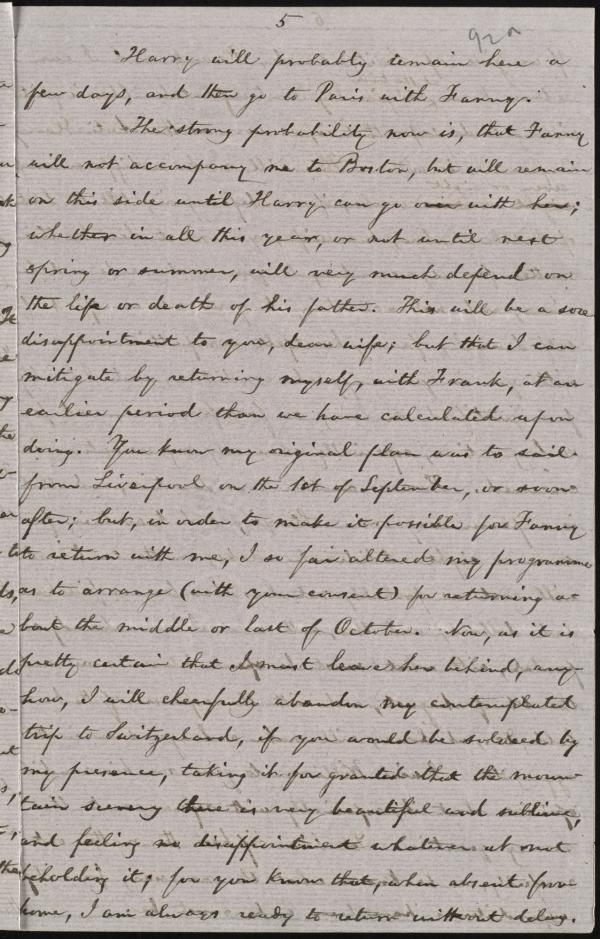 5
92A
Harry will probably remain here a
few days, and then go to Paris with Fanny.
The strong probability now is, that Fanny
will not accompany me to Boston, but will remain
on this side until Harry can go over with her;
whether in all this year, or not until next
spring or summer, will very much depend on
the life or death of his father. This will be a sore
disappointment to you, dear wife; but that I can
mitigate by returning myself, with Frank, at an
earlier period than we have calculated upon
doing. You know my original plan was to sail
from Liverpool on the 1st of September, or soon
after; but, in order to make it possible for Fanny
to return with me, I so far altered my programme
as to arrange (with your consent) for returning a-
bout the middle or last of October. Now, as it is
pretty certain that I must leave her behind, any-
how, I will cheerfully abandon my contemplated
trip to Switzerland, if you would be solaced by
my presence, taking it for granted that the moun-
tain scenery there is very beautiful and sublime,
and feeling no disappointment whatever at not
beholding it; for you know that, when absent from
home, I am always ready to return without delay.